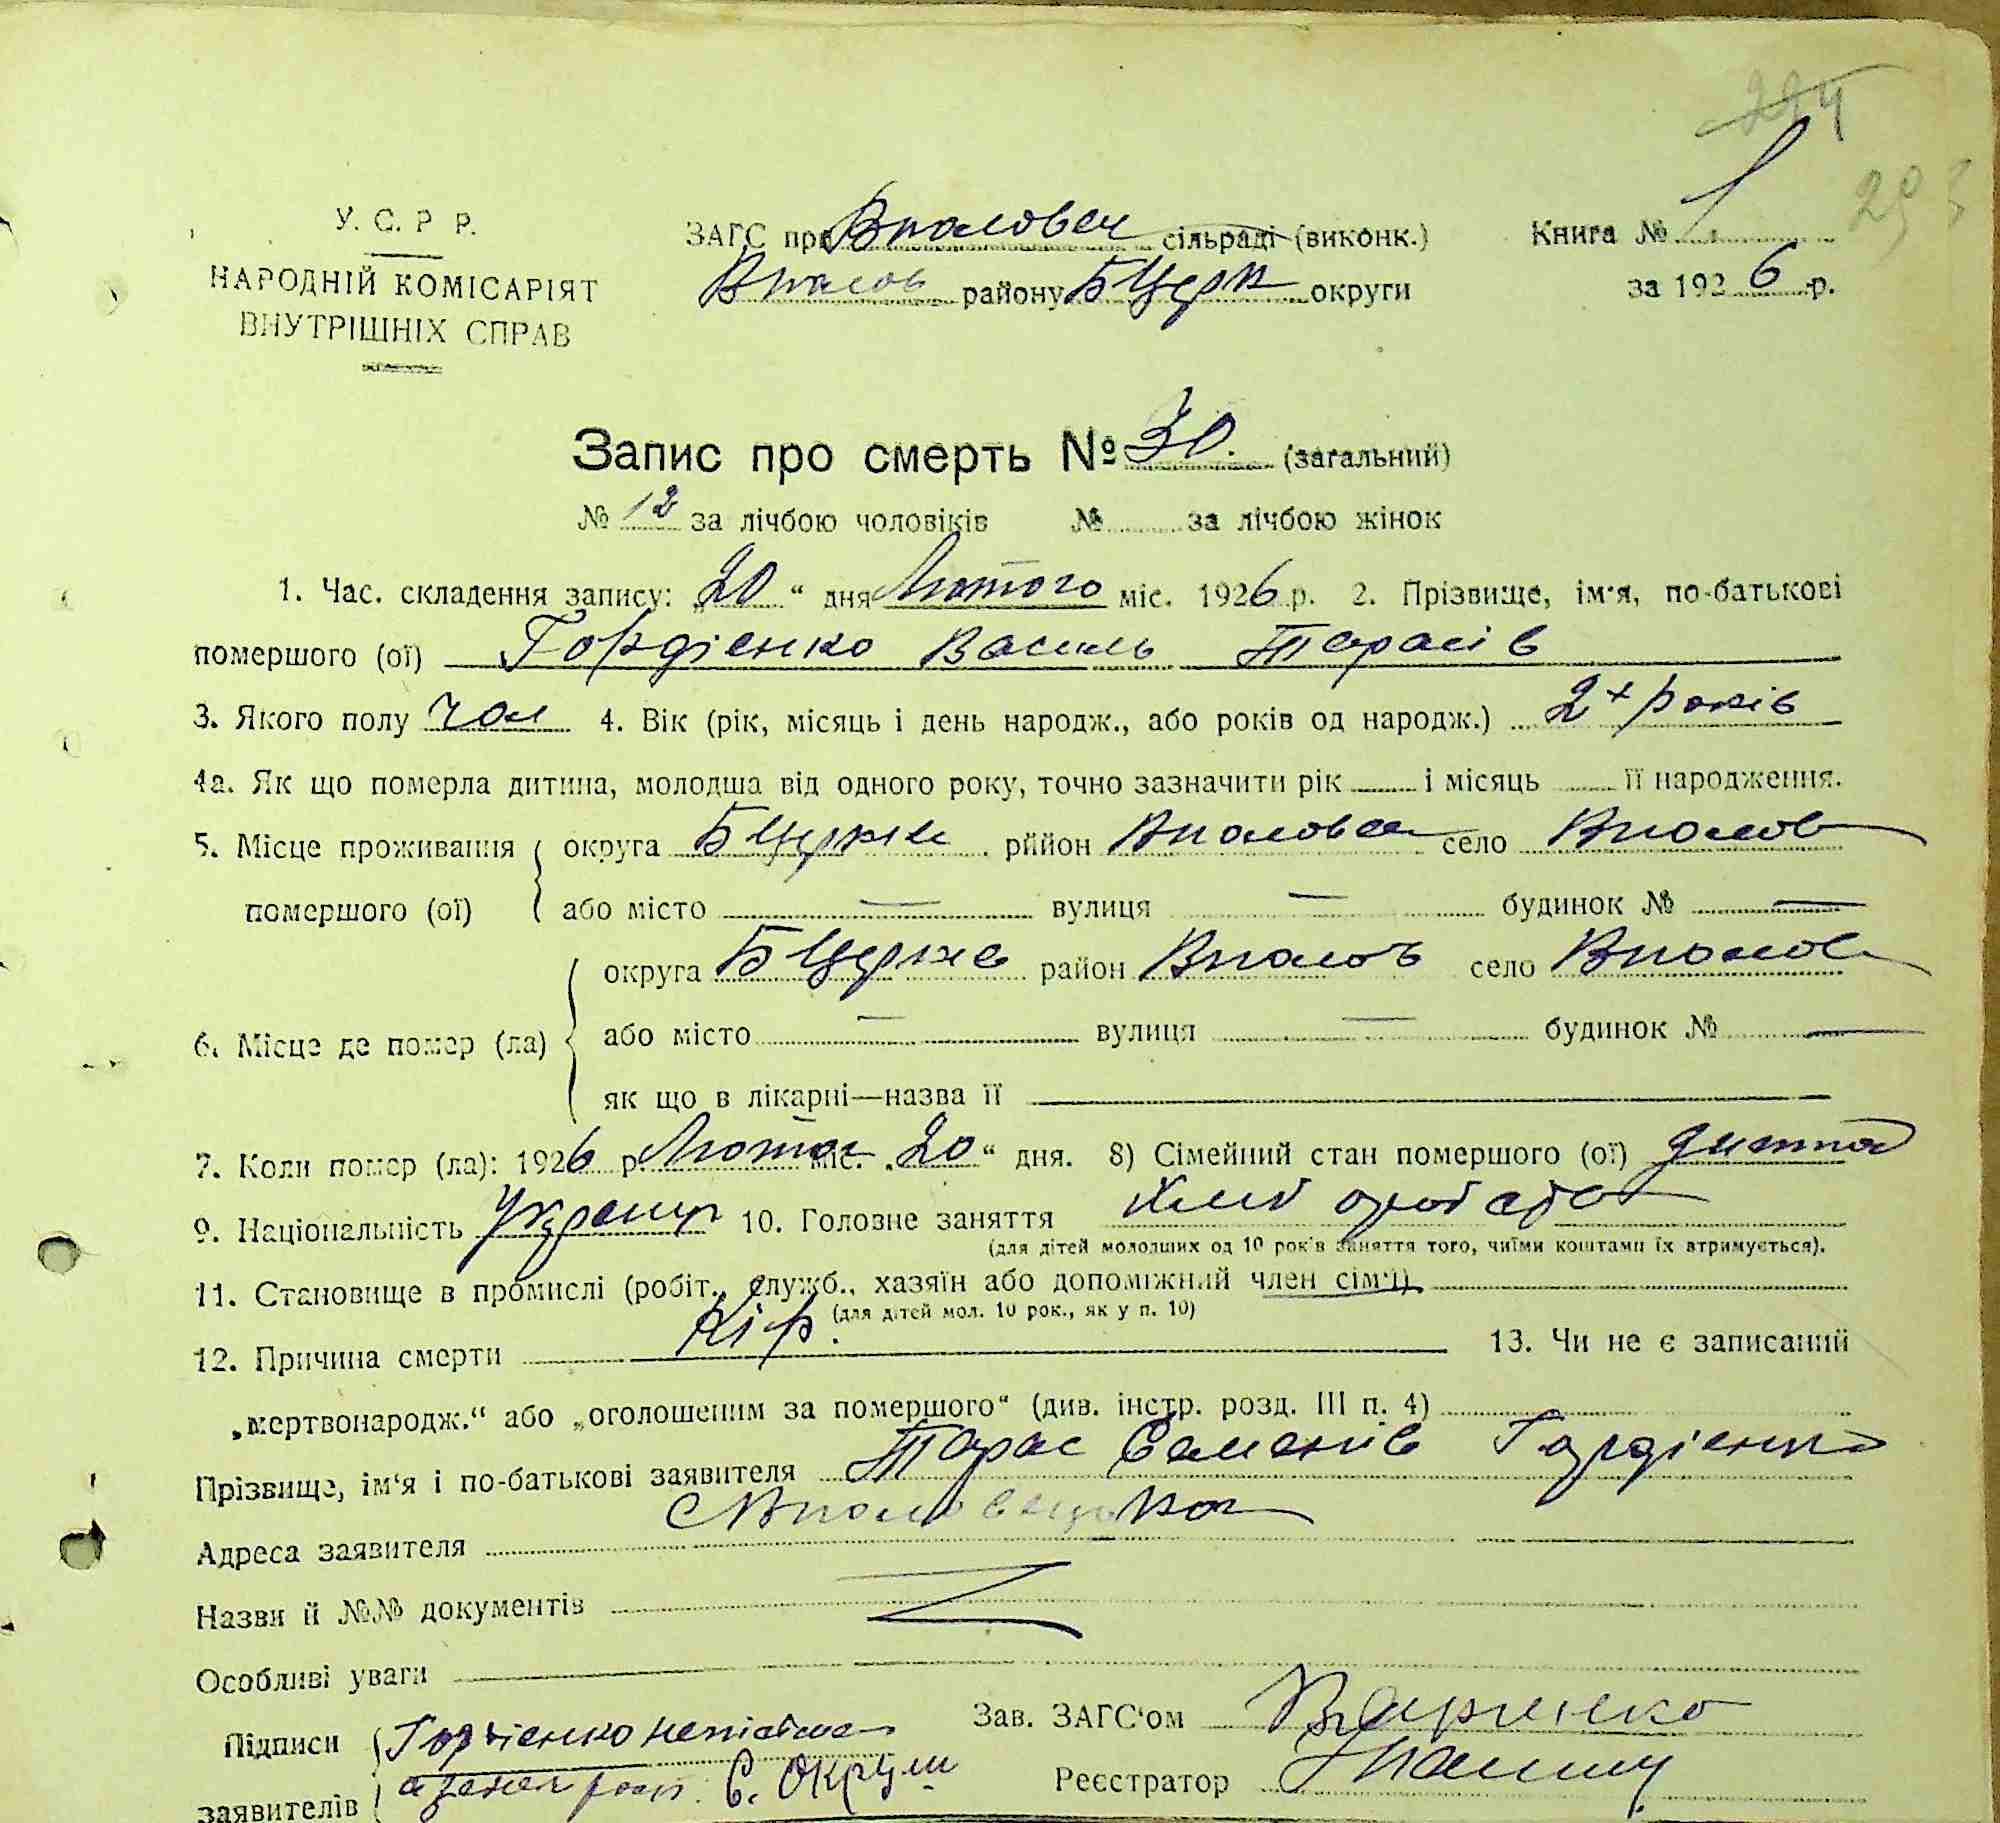 224
293
У. С. Р Р.
НАРОДНІЙ КОМІСАРІЯТ
ВНУТРІШНІХ СПРАВ
ЗАГС при сільраді (виконк.)
району Б Церк округи
Книга № 1
за 1926 р.
Запис про смерть № 30. (загальний)
№ 12 за лічбою чоловіків № за лічбою жінок
1. Час. складення запису: „20“ дня Лютого міс. 1926 р. 2. Прізвище, ім'я, по-батькові
помершого (ої) Гордієнко Василь Тарасів
3. Якого полу чол 4. Вік (рік, місяць і день народж., або років од народж.) 2 років
4а. Як що померла дитина, молодша від одного року, точно зазначити рік і місяць її народження.
5. Місце проживання округа Б Церкв рйіон село
помершого (ої) або місто — вулиця — будинок № —
округа Б Церкв район село
6. Місце де помер (ла) або місто — вулиця — будинок № —
як що в лікарні—назва її
7. Коли помер (ла): 1926 р. Лютог міс. „20“ дня. 8) Сімейний стан помершого (ої) дитина
9. Національність Украпнц 10. Головне заняття
(для дітей молодших од 10 років заняття того, чиїми коштами їх втримується).
11. Становище в промислі (робіт., служб., хазяїн або допоміжний член сім'ї)
(для дітей мол. 10 рок., як у п. 10)
12. Причина смерти Кір. 13. Чи не є записаний
„мертвонародж.“ або „оголошеним за помершого“ (див. інстр. розд. III п. 4)
Прізвище, ім'я і по-батькові заявителя Тарас Семенів Гордієнко
Адреса заявителя
Назви й №№ документів
Особливі уваги
Підписи Гордієнко Зав. ЗАГС'ом
заявителів Реєстратор